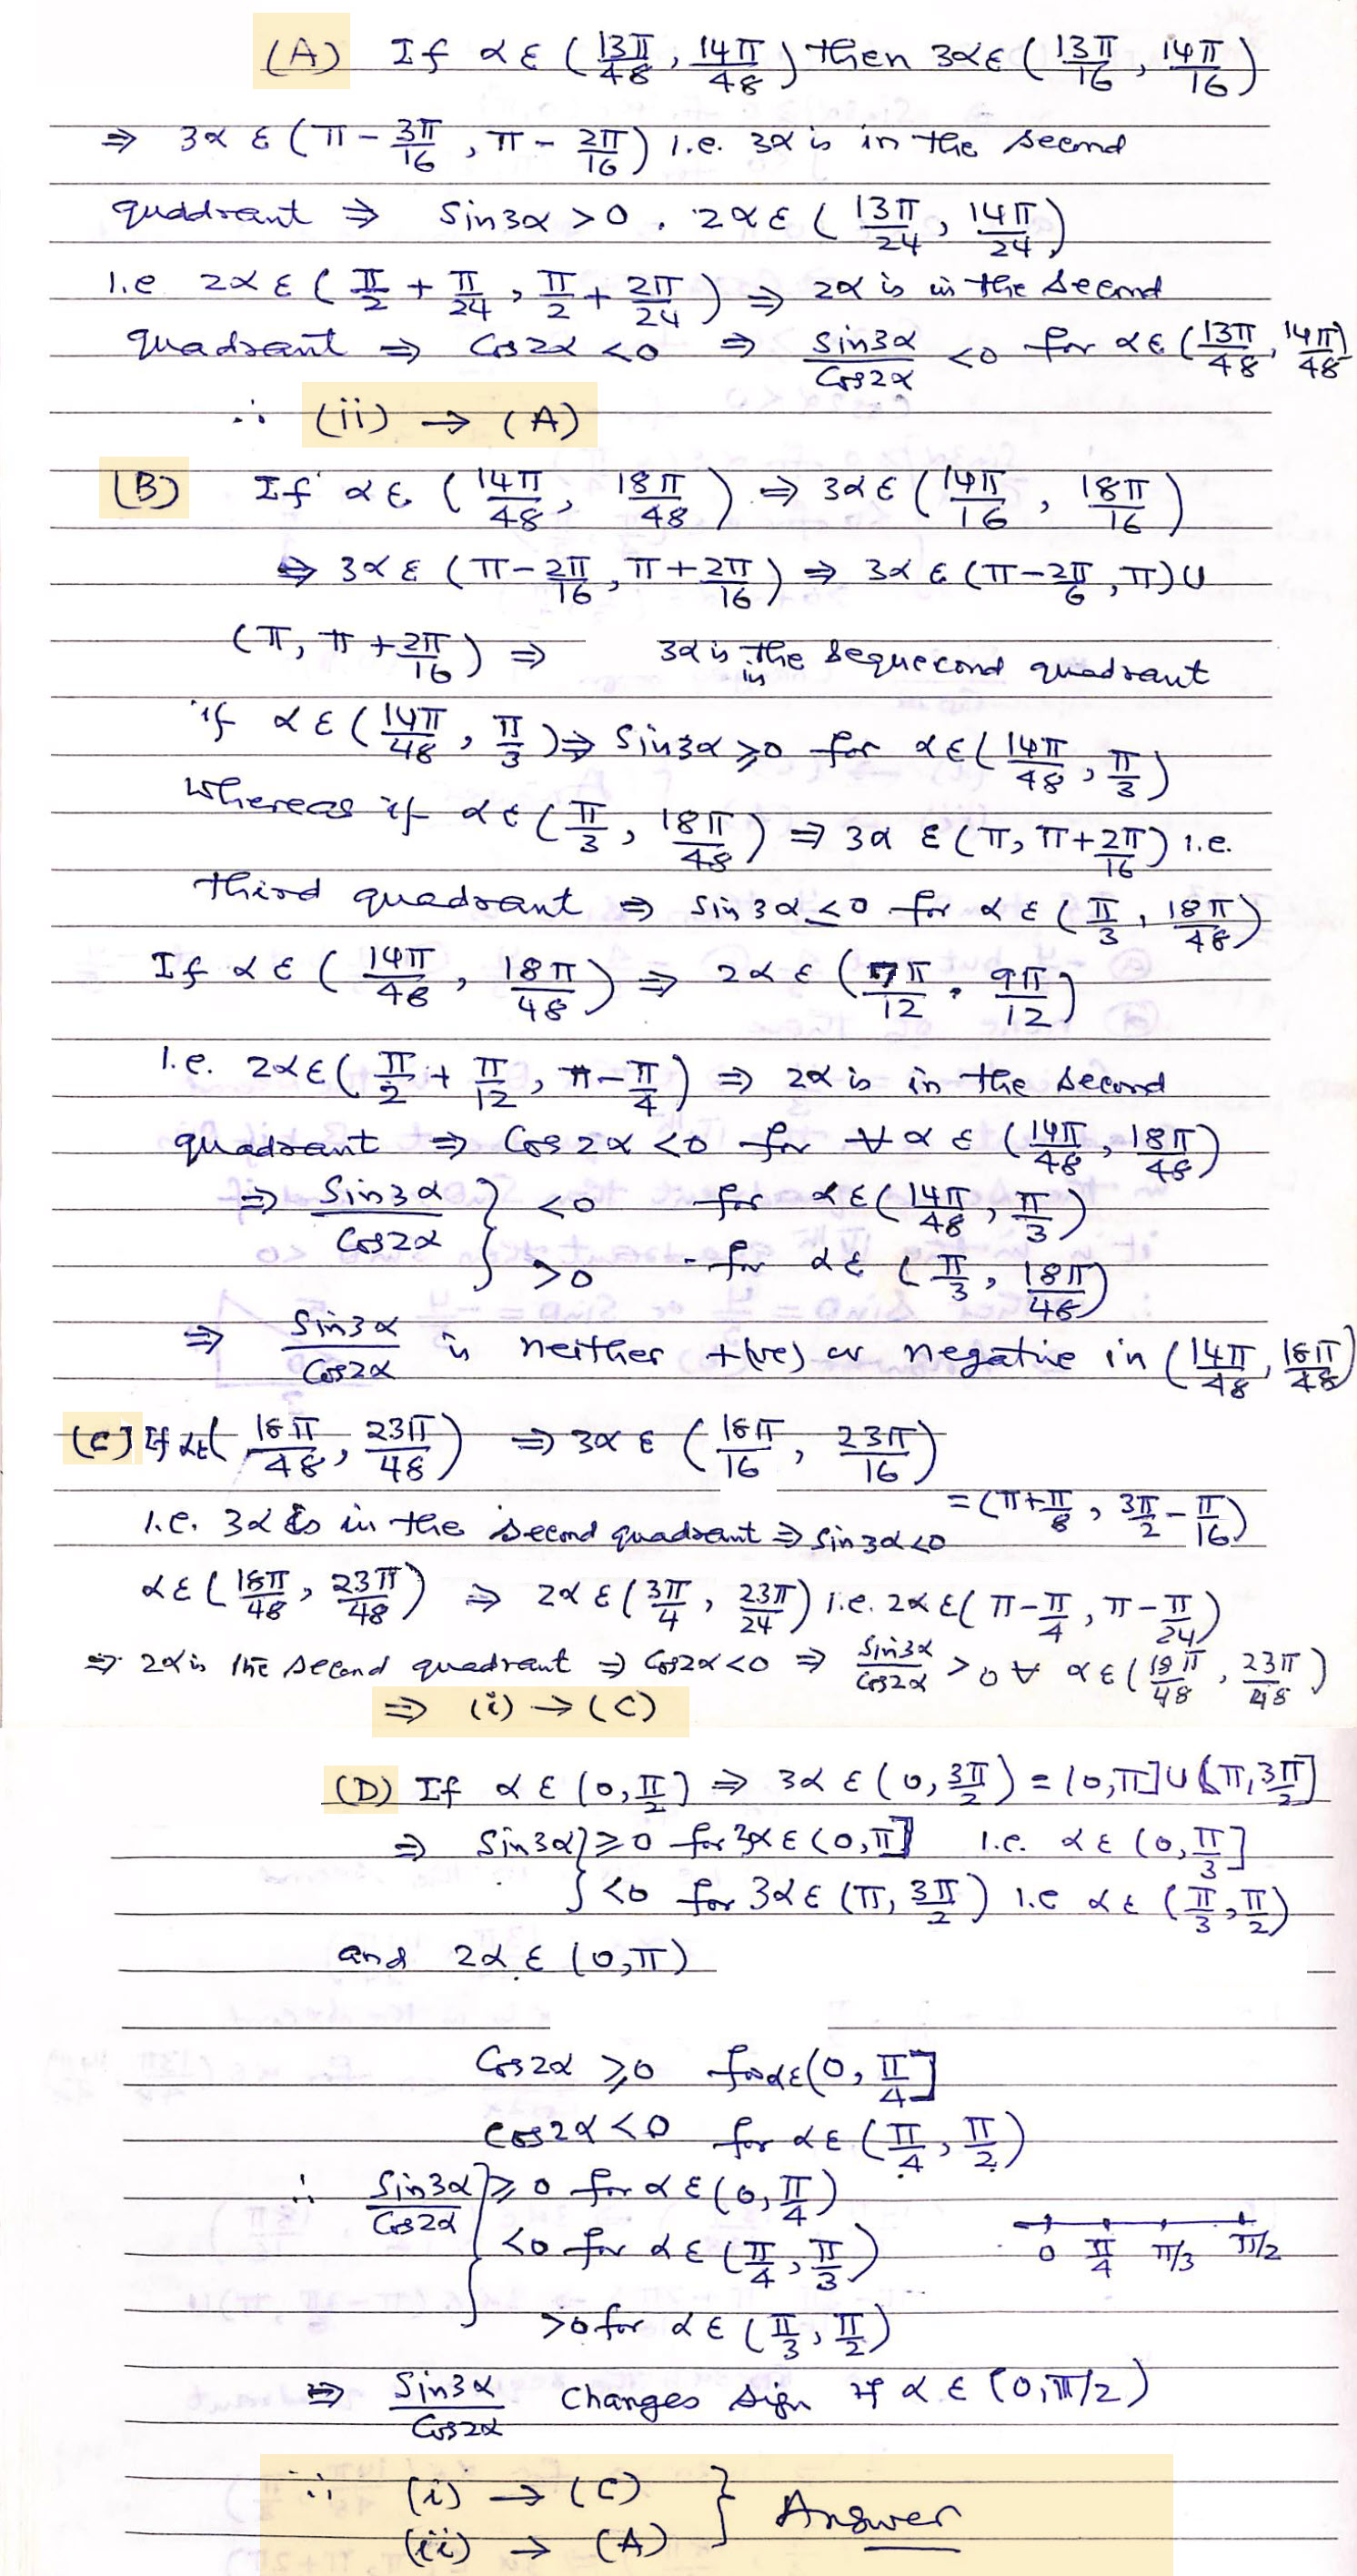 (A) If α ε (13π/48, 14π/48) then 3α ε (13π/16, 14π/16)
⇒ 3α ε (π - 3π/16, π - 2π/16) i.e. 3α is in the second
quadrant ⇒ Sin3α > 0. 2α ε (13π/24, 14π/24)
i.e 2α ε (π/2 + π/24, π/2 + 2π/24) ⇒ 2α is in the second
quadrant ⇒ Cos2α < 0 ⇒ Sin3α/Cos2α < 0 for α ε (13π/48, 14π/48)
∴ (ii) → (A)
(B) If α ε (14π/48, 18π/48) ⇒ 3α ε (14π/16, 18π/16)
⇒ 3α ε (π - 2π/16, π + 2π/16) ⇒ 3α ε (π - 2π/6, π) ∪
(π, π + 2π/16) ⇒ 3α is in the sequecond quadrant
if α ε (14π/48, π/3) ⇒ Sin3α ⩾ 0 for α ε (14π/48, π/3)
Whereas if α ε (π/3, 18π/48) ⇒ 3α ε (π, π + 2π/16) i.e.
third quadrant ⇒ Sin3α < 0 for α ε (π/3, 18π/48)
If α ε (14π/48, 18π/48) ⇒ 2α ε (7π/12, 9π/12)
i.e. 2α ε (π/2 + π/12, π - π/4) ⇒ 2α is in the second
quadrant ⇒ Cos2α < 0 for ∀ α ε (14π/48, 18π/48)
⇒ Sin3α/Cos2α } < 0 for α ε (14π/48, π/3)
> 0 - for α ε (π/3, 18π/48)
⇒ Sin3α/Cos2α is neither +(ve) or negative in (14π/48, 18π/48)
(C) If α ε (18π/48, 23π/48) ⇒ 3α ε (18π/16, 23π/16)
= (π + π/8, 3π/2 - π/16)
i.e. 3α is in the second quadrant ⇒ sin3α < 0
α ε (18π/48, 23π/48) ⇒ 2α ε (3π/4, 23π/24) i.e. 2α ε (π - π/4, π - π/24)
⇒ 2α is the second quadrant ⇒ Cos2α < 0 ⇒ Sin3α/Cos2α > 0 ∀ α ε (18π/48, 23π/48)
⇒ (i) → (C)
(D) If α ε (0, π/2) ⇒ 3α ε (0, 3π/2) = (0, π] ∪ (π, 3π/2]
⇒ Sin3α } ⩾ 0 for 3α ε (0, π] i.e. α ε (0, π/3]
< 0 for 3α ε (π, 3π/2) i.e α ε (π/3, π/2)
and 2α ε (0, π)
Cos2α ⩾ 0 for α ε (0, π/4]
Cos2α < 0 for α ε (π/4, π/2)
∴ Sin3α/Cos2α } ⩾ 0 for α ε (0, π/4)
< 0 for α ε (π/4, π/3)
0 π/4 π/3 π/2
> 0 for α ε (π/3, π/2)
⇒ Sin3α/Cos2α Changes sign if α ε (0, π/2)
∴ (i) → (C)
(ii) → (A) } Answer